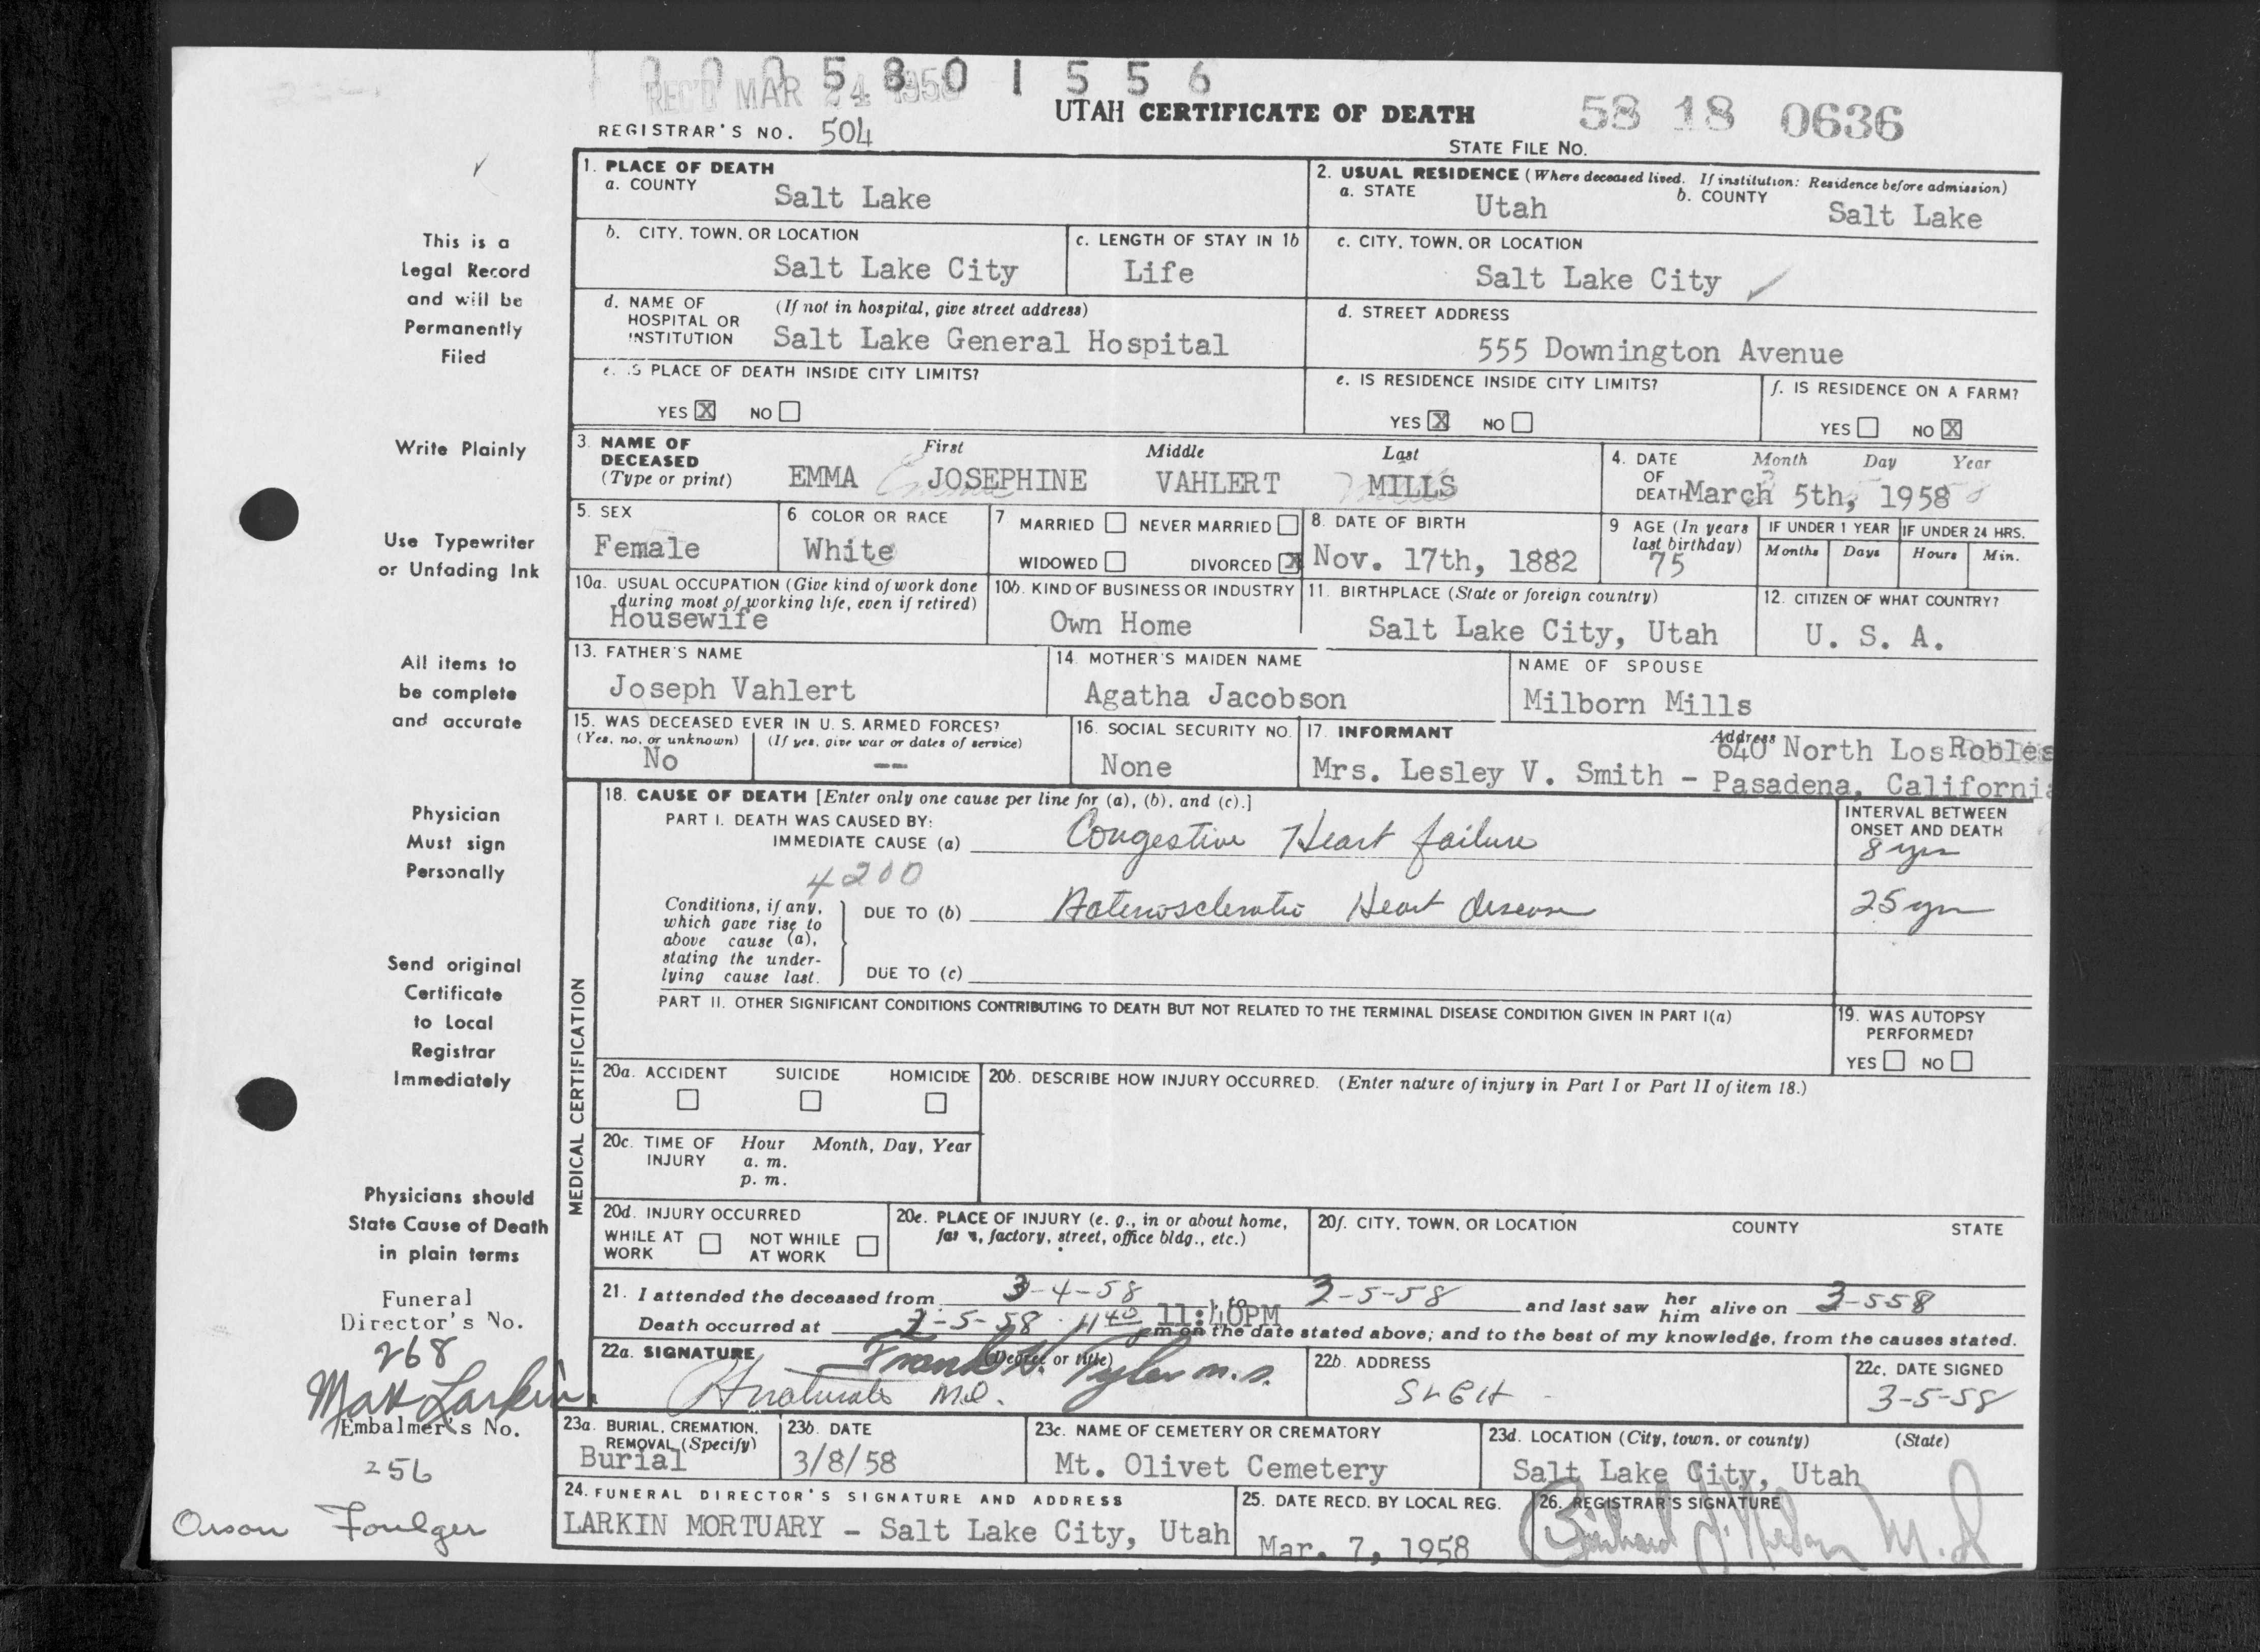 1 0 0 5 8 0 1 5 5 6
REC'D MAR 24 1958
UTAH CERTIFICATE OF DEATH
58 18 0636
REGISTRAR'S NO. 504
STATE FILE NO.
This is a
Legal Record
and will be
Permanently
Filed
Write Plainly
Use Typewriter
or Unfading Ink
All items to
be complete
and accurate
Physician
Must sign
Personally
Send original
Certificate
to Local
Registrar
Immediately
Physicians should
State Cause of Death
in plain terms
Funeral
Director's No.
268
Matt Larkin
Embalmer's No.
256
Orson Foulger
1. PLACE OF DEATH
a. COUNTY
Salt Lake
2. USUAL RESIDENCE (Where deceased lived. If institution: Residence before admission)
a. STATE
Utah
b. COUNTY
Salt Lake
b. CITY, TOWN, OR LOCATION
Salt Lake City
c. LENGTH OF STAY IN 1b
Life
c. CITY, TOWN, OR LOCATION
Salt Lake City
d. NAME OF HOSPITAL OR INSTITUTION
(If not in hospital, give street address)
Salt Lake General Hospital
d. STREET ADDRESS
555 Downington Avenue
e. IS PLACE OF DEATH INSIDE CITY LIMITS?
YES X NO
e. IS RESIDENCE INSIDE CITY LIMITS?
YES X NO
f. IS RESIDENCE ON A FARM?
YES NO X
3. NAME OF DECEASED (Type or print)
First Middle Last
EMMA JOSEPHINE VAHLERT MILLS
4. DATE OF DEATH
Month Day Year
March 5th, 1958
5. SEX
Female
6 COLOR OR RACE
White
7 MARRIED NEVER MARRIED
WIDOWED DIVORCED X
8. DATE OF BIRTH
Nov. 17th, 1882
9 AGE (In years last birthday)
75
IF UNDER 1 YEAR
Months Days
IF UNDER 24 HRS.
Hours Min.
10a. USUAL OCCUPATION (Give kind of work done during most of working life, even if retired)
Housewife
10b. KIND OF BUSINESS OR INDUSTRY
Own Home
11. BIRTHPLACE (State or foreign country)
Salt Lake City, Utah
12. CITIZEN OF WHAT COUNTRY?
U. S. A.
13. FATHER'S NAME
Joseph Vahlert
14. MOTHER'S MAIDEN NAME
Agatha Jacobson
NAME OF SPOUSE
Milborn Mills
15. WAS DECEASED EVER IN U. S. ARMED FORCES?
(Yes, no, or unknown) (If yes, give war or dates of service)
No --
16. SOCIAL SECURITY NO.
None
17. INFORMANT
Address
640 North Los Robles
Mrs. Lesley V. Smith - Pasadena, California
MEDICAL CERTIFICATION
18. CAUSE OF DEATH [Enter only one cause per line for (a), (b), and (c).]
PART I. DEATH WAS CAUSED BY:
IMMEDIATE CAUSE (a) Congestive Heart failure
INTERVAL BETWEEN ONSET AND DEATH
8 yrs
4200
Conditions, if any, which gave rise to above cause (a), stating the underlying cause last.
DUE TO (b) Arteriosclerotic Heart disease
25 yrs
DUE TO (c)
PART II. OTHER SIGNIFICANT CONDITIONS CONTRIBUTING TO DEATH BUT NOT RELATED TO THE TERMINAL DISEASE CONDITION GIVEN IN PART I(a)
19. WAS AUTOPSY PERFORMED?
YES NO
20a. ACCIDENT SUICIDE HOMICIDE
20b. DESCRIBE HOW INJURY OCCURRED. (Enter nature of injury in Part I or Part II of item 18.)
20c. TIME OF INJURY
Hour Month, Day, Year
a. m.
p. m.
20d. INJURY OCCURRED
WHILE AT WORK NOT WHILE AT WORK
20e. PLACE OF INJURY (e. g., in or about home, farm, factory, street, office bldg., etc.)
20f. CITY, TOWN, OR LOCATION COUNTY STATE
21. I attended the deceased from 3-4-58 to 3-5-58 and last saw her him alive on 3-5 58
Death occurred at 3-5-58 11 40 11:40PM m on the date stated above; and to the best of my knowledge, from the causes stated.
22a. SIGNATURE (Degree or title)
Frank H. Tyler M.D.
M.D.
22b. ADDRESS
SLGH
22c. DATE SIGNED
3-5-58
23a. BURIAL, CREMATION, REMOVAL (Specify)
Burial
23b. DATE
3/8/58
23c. NAME OF CEMETERY OR CREMATORY
Mt. Olivet Cemetery
23d. LOCATION (City, town, or county) (State)
Salt Lake City, Utah
24. FUNERAL DIRECTOR'S SIGNATURE AND ADDRESS
LARKIN MORTUARY - Salt Lake City, Utah
25. DATE RECD. BY LOCAL REG.
Mar. 7, 1958
26. REGISTRAR'S SIGNATURE
M.D.